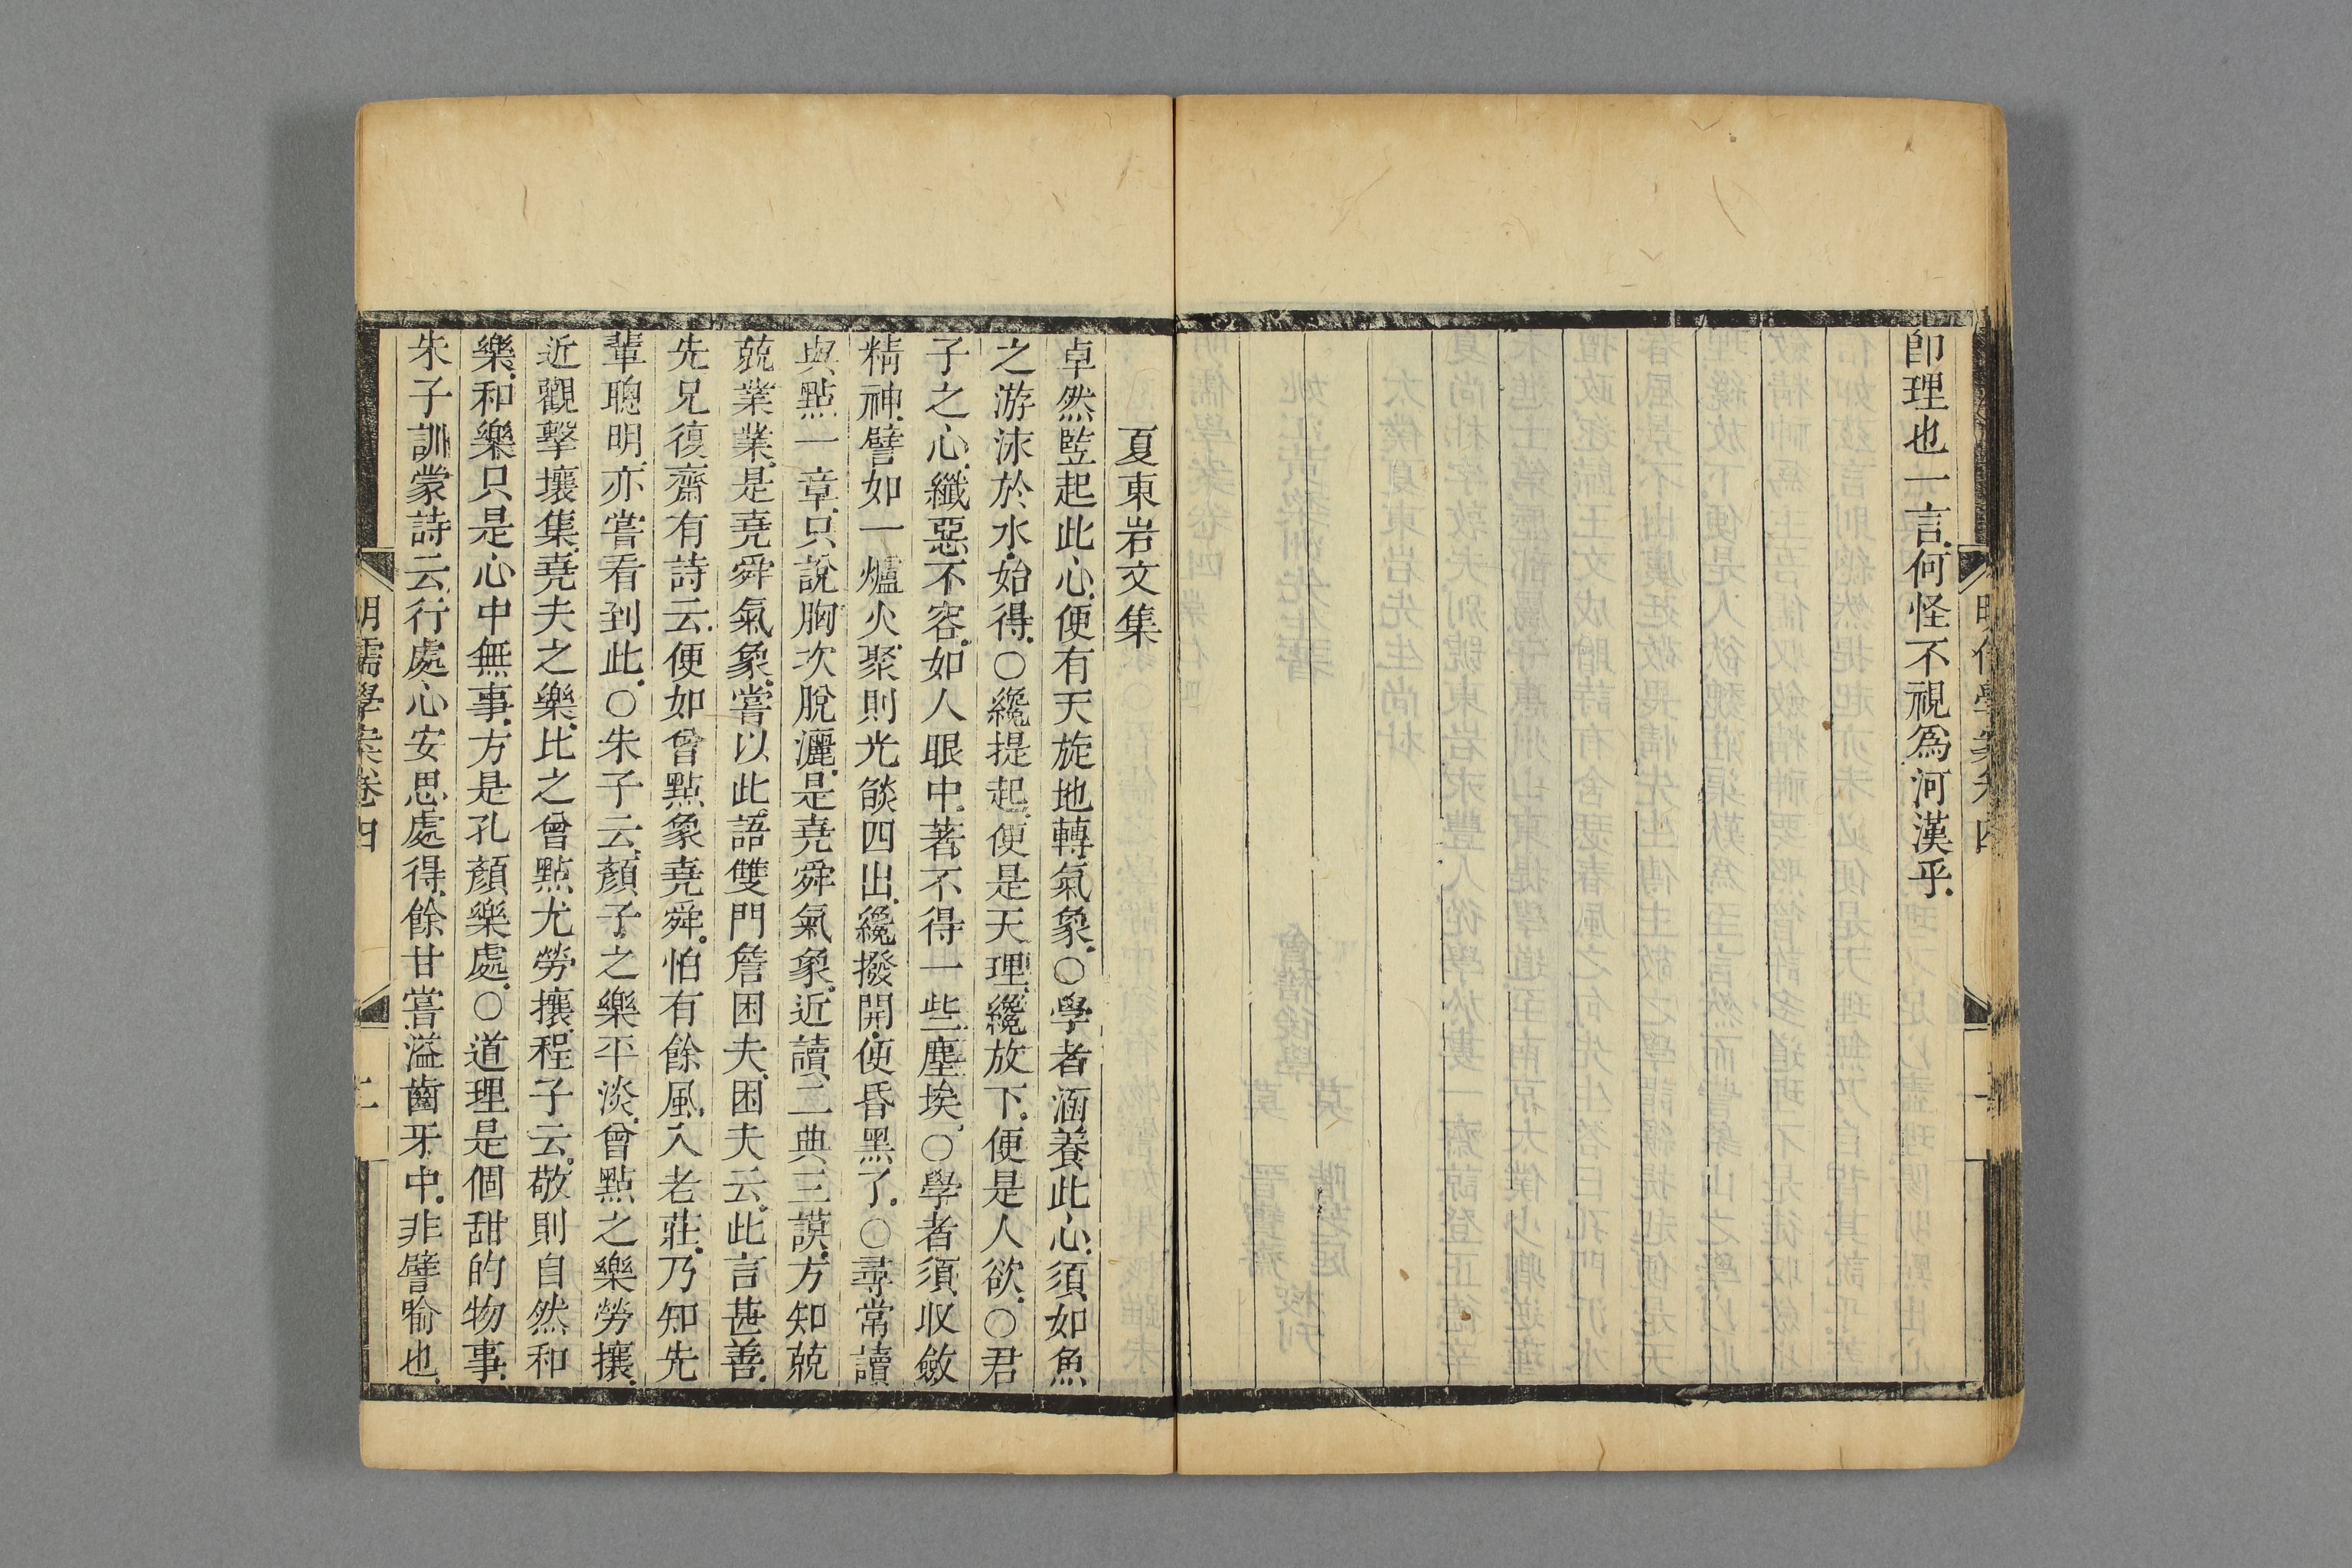 明儒學案卷四
一
卽理也一言何怪不視爲河漢乎
夏東岩文集
卓然竪起此心便有天旋地轉氣象○學者涵養此心須如魚
之游泳於水始得○纔提起便是天理纔放下便是人欲○君
子之心纖惡不容如人眼中著不得一些塵埃○學者須收斂
精神譬如一爐火聚則光燄四出纔撥開便昏黑了○尋常讀
與點一章只說胸次脫灑是堯舜氣象近讀二典三謨方知兢
兢業業是堯舜氣象嘗以此語雙門詹困夫困夫云此言甚善
先兄復齋有詩云便如曾點象堯舜怕有餘風入老莊乃知先
輩聰明亦嘗看到此○朱子云顏子之樂平淡曾點之樂勞攘
近觀擊壤集堯夫之樂比之曾點尤勞攘程子云敬則自然和
樂和樂只是心中無事方是孔顏樂處○道理是個甜的物事
朱子訓蒙詩云行處心安思處得餘甘嘗溢齒牙中非譬喻也
明儒學案卷四
二